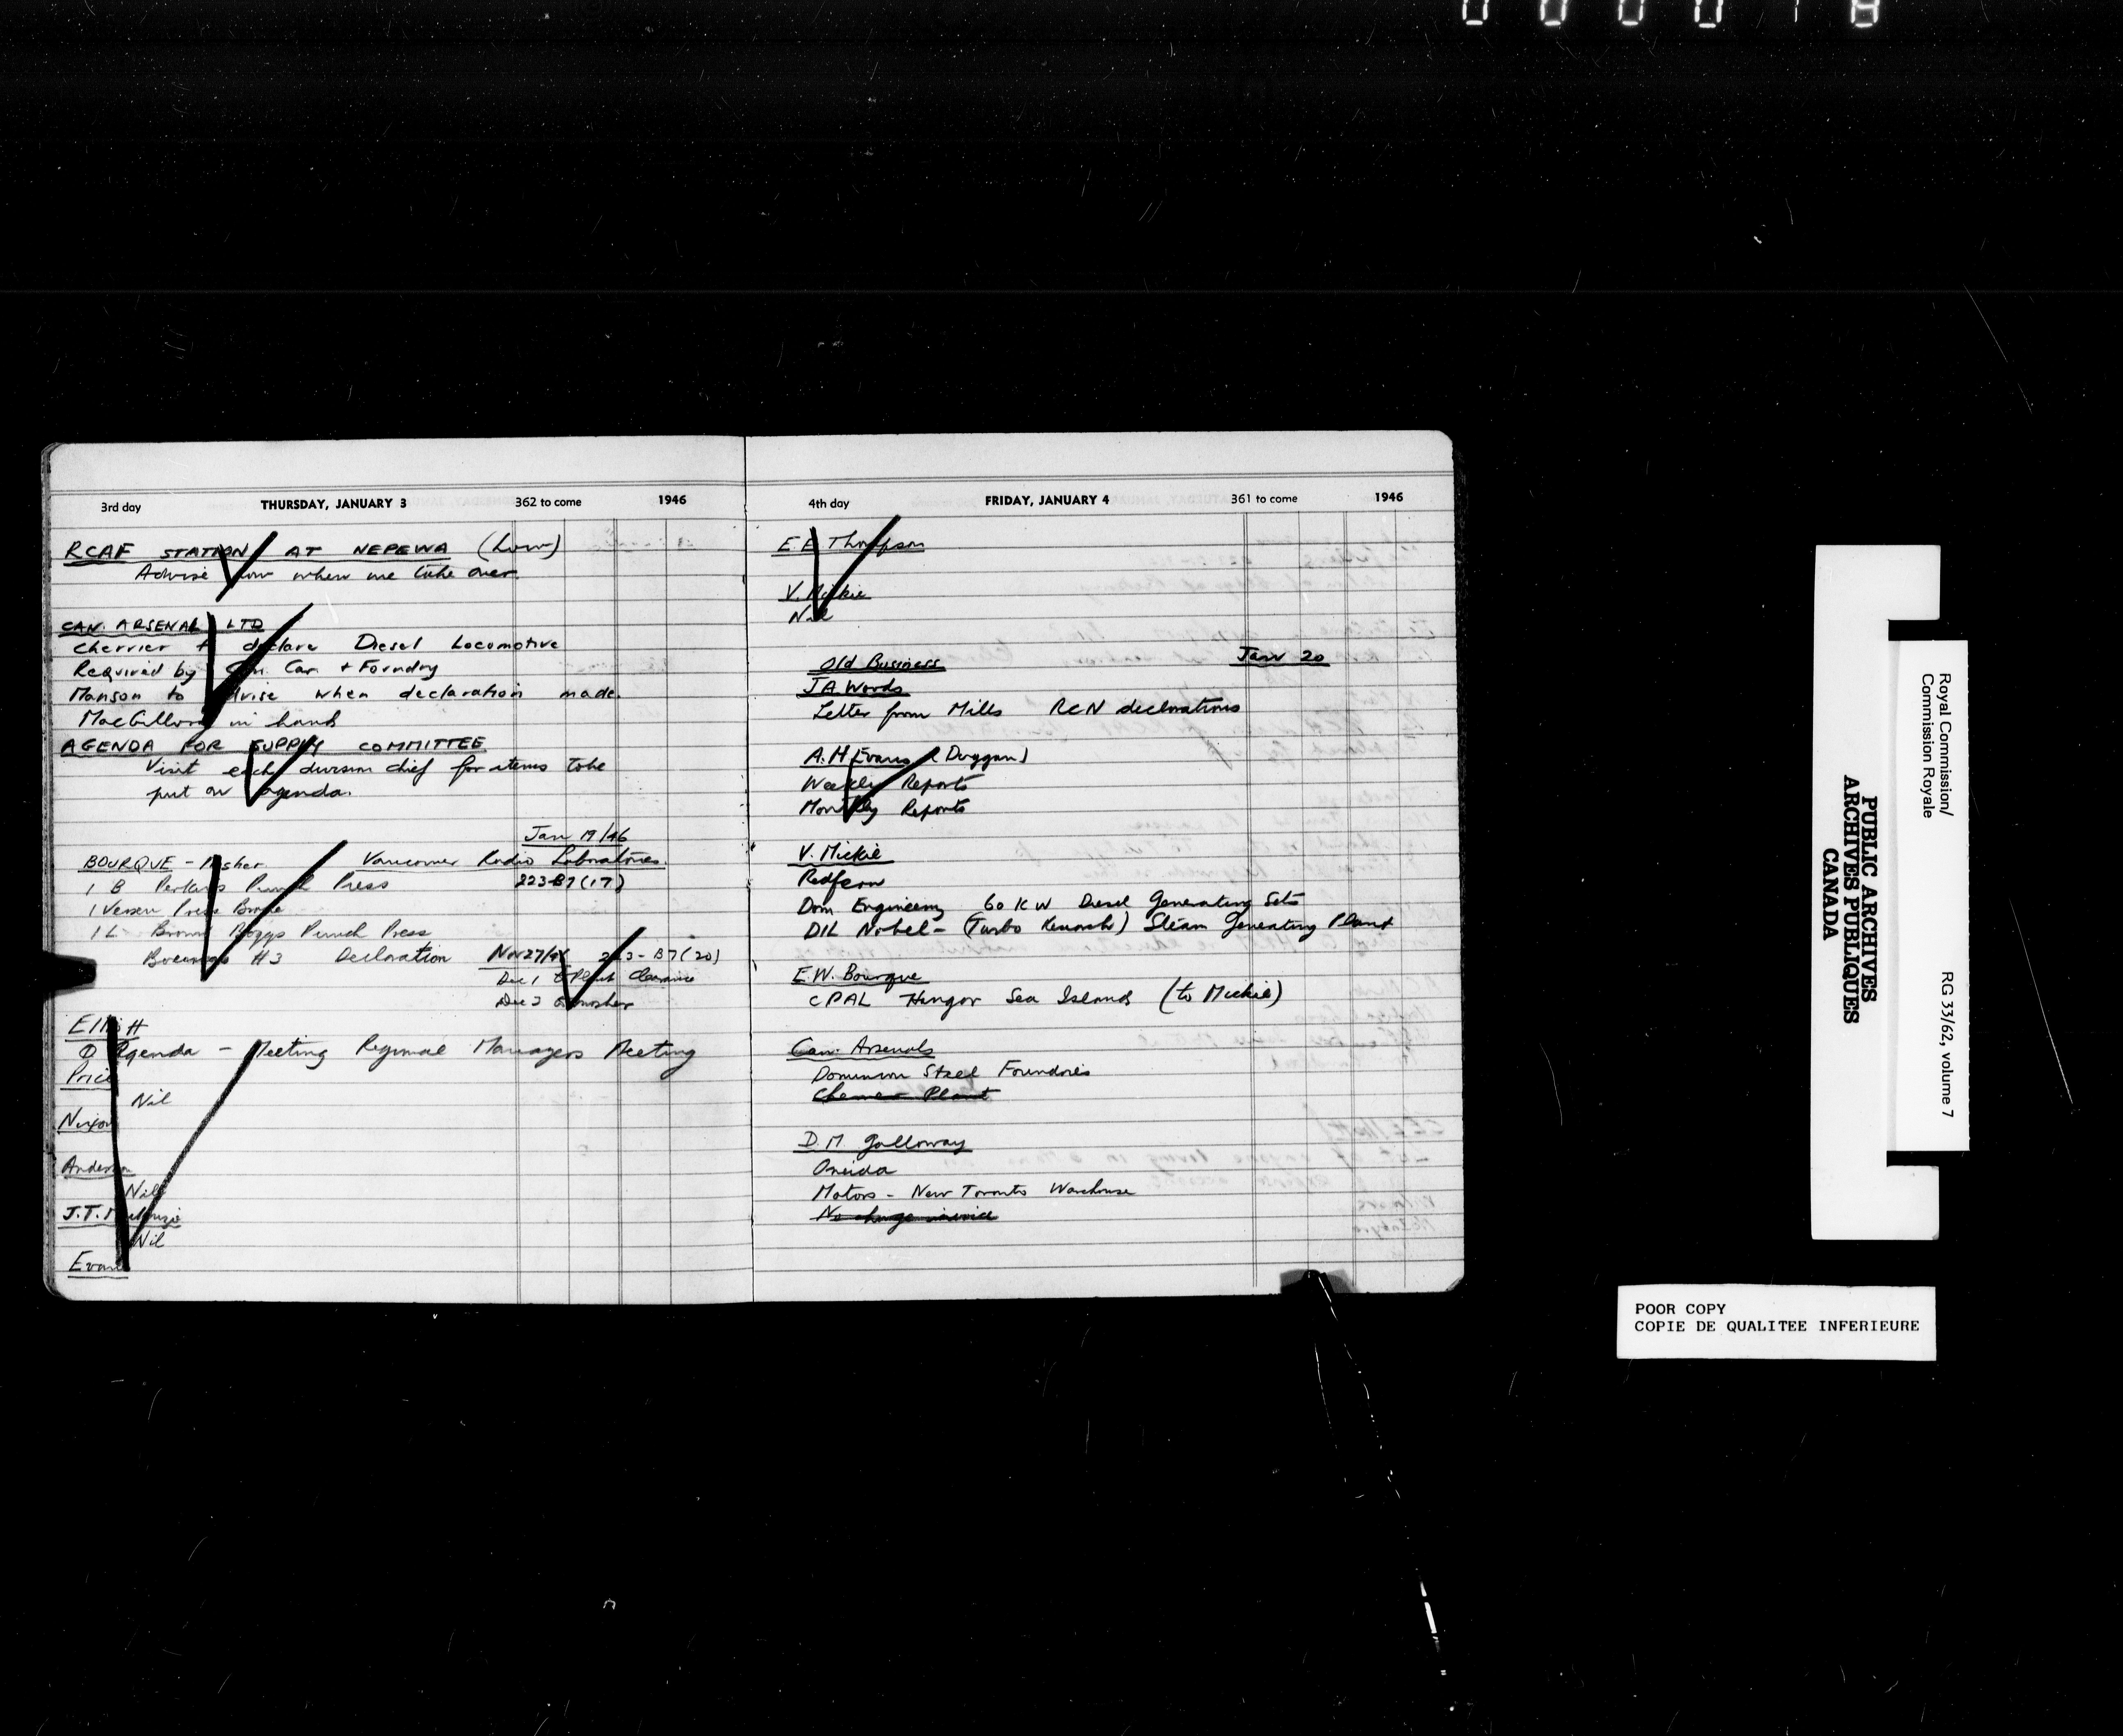 0 0 0 0 1 8
3rd day THURSDAY, JANUARY 3 362 to come 1946
RCAF STATION AT NEPEWA (Low)
Advise Low when we take over.
CAN. ARSENAL LTD
Cherrier to declare Diesel Locomotive
Required by Can. Car. + Foundry
Manson to advise when declaration made.
MacGillvary in hand
AGENDA FOR SUPPLY COMMITTEE
Visit each division chief for items to be
put on agenda.
Jan 19/46
BOURQUE - Mosher. Vancouver Radio Laboratories.
1 B Perkins Punch Press 223-B7(17)
1 Press Brake
1 L Brown Boggs Punch Press
Boeings #3 Declaration Nov 27/45 223-B7(20)
Dec 1 to Plant Clearance
Dec 3 to Mosher
Elliott
Agenda - Meeting Regional Managers Meeting
Price
Nil
Nixon
Anderson
Nil
J.T. McKenzie
Nil
Evans
4th day FRIDAY, JANUARY 4 361 to come 1946
E.E Thompson
V. Mickie
Nil
Old Business Jan 20
J A Woods
Letter from Mills RCN declarations
A.H Evans (Duggan)
Weekly Reports
Monthly Reports
V. Mickie
Redfern
Dom Engineering 60 KW Diesel Generating Sets
DIL Nobel - (Turbo ) Steam Generating Plant
E.W. Bourque
CPAL Hangar Sea Islands (to Mickie)
Can. Arsenals
Dominion Steel Foundries
Plant
D.M. Galloway
Oneida
Motors - New Toronto Warehouse
No charge invoice
Royal Commission/
Commission Royale
RG 33/62, volume 7
PUBLIC ARCHIVES
ARCHIVES PUBLIQUES
CANADA
POOR COPY
COPIE DE QUALITEE INFERIEURE